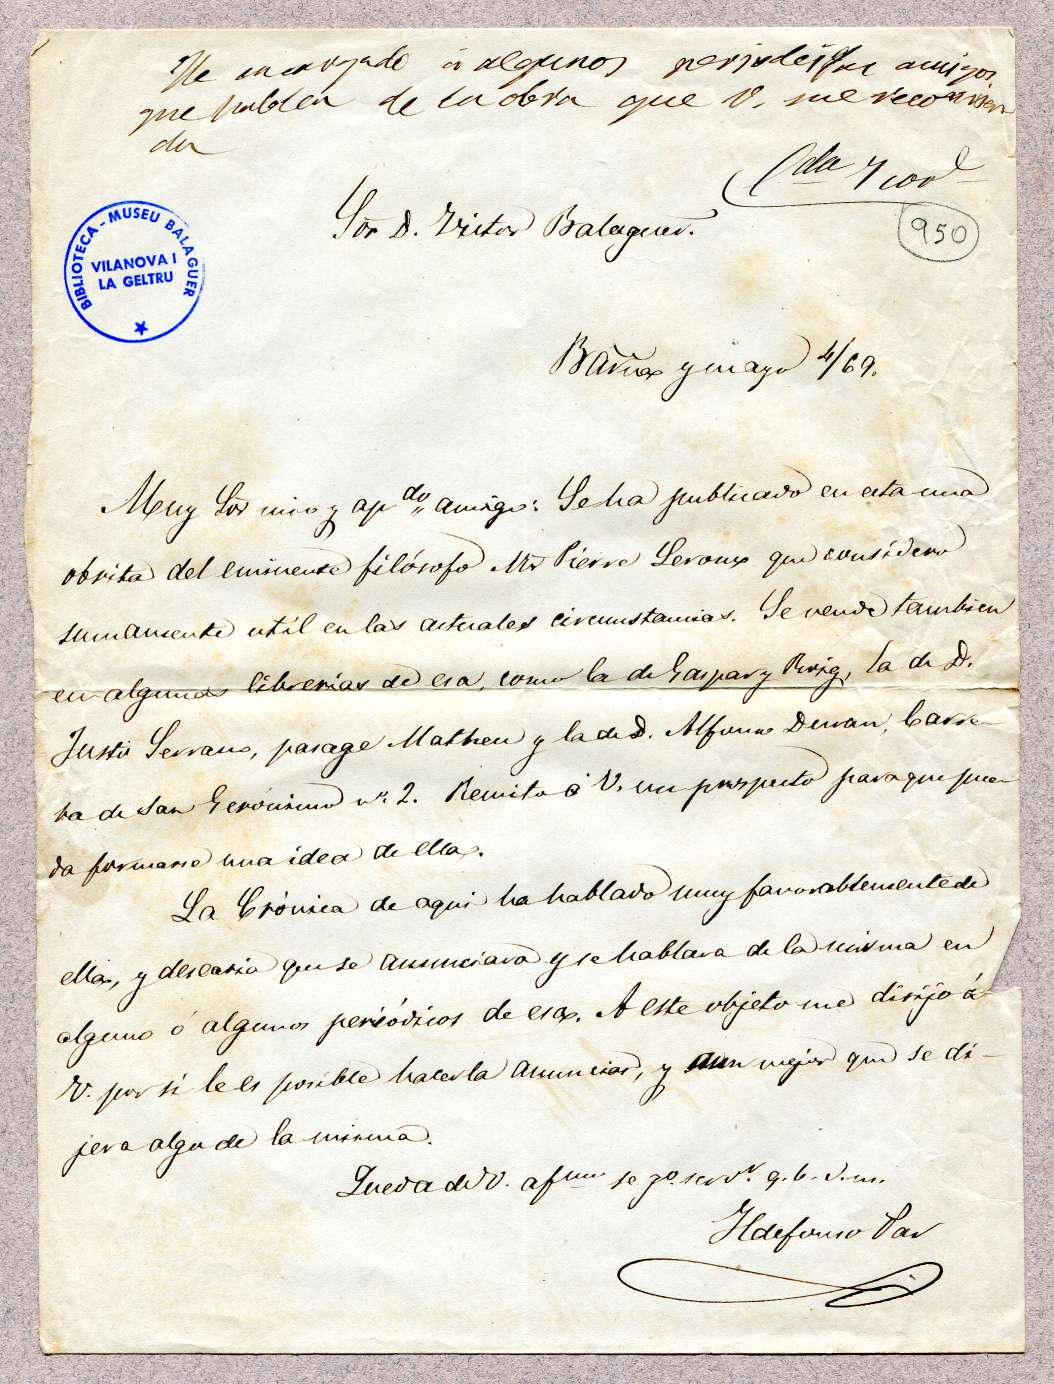 He encargado á algunos periodistas amigos
que hablen de la obra que V. me recomien
da
Cda 7
Sor D. Victor Balaguer.
950
BIBLIOTECA - MUSEU BALAGUER
VILANOVA I
LA GELTRU
Barna y mayo 4/69.
Muy Sor mio y apdo amigo: Se ha publicado en esta una
obrita del eminente filósofo Mr Pierre Leroux que considero
sumamente util en las actuales circunstancias. Se vende tambien
en algunas librerias de esa, como la de Gaspar y Roig, la de D.
Justo Serrano, pasage Matheu y la de D. Alfonso Duran, Carre-
ra de San Gerónimo nº. 2. Remito á V. un prospecto para que pue-
da formarse una idea de ella.
La Crónica de aqui ha hablado muy favorablemente de
ella, y desearia que se anunciara y se hablara de la misma en
alguno ó algunos periódicos de esa. A este objeto me dirijo á
V. por si le es posible hacerla anunciar, y aun mejor que se di-
jera algo de la misma.
Queda de V. afmo se gº. servr. q. b. s. m.
Ildefonso Par